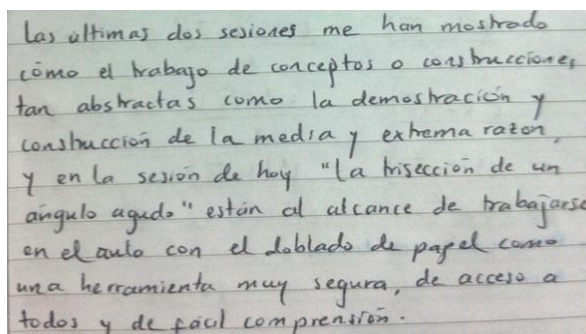 Las ultimas dos sesiones me han mostrado
cómo el trabajo de conceptos o construcciones
tan abstractas como la demostración y
construcción de la media y extrema razón,
y en la sesión de hoy "la trisección de un
ángulo agudo" están al alcance de trabajarse
en el aula con el doblado de papel como
una herramienta muy segura, de acceso a
todos y de fácil comprensión.